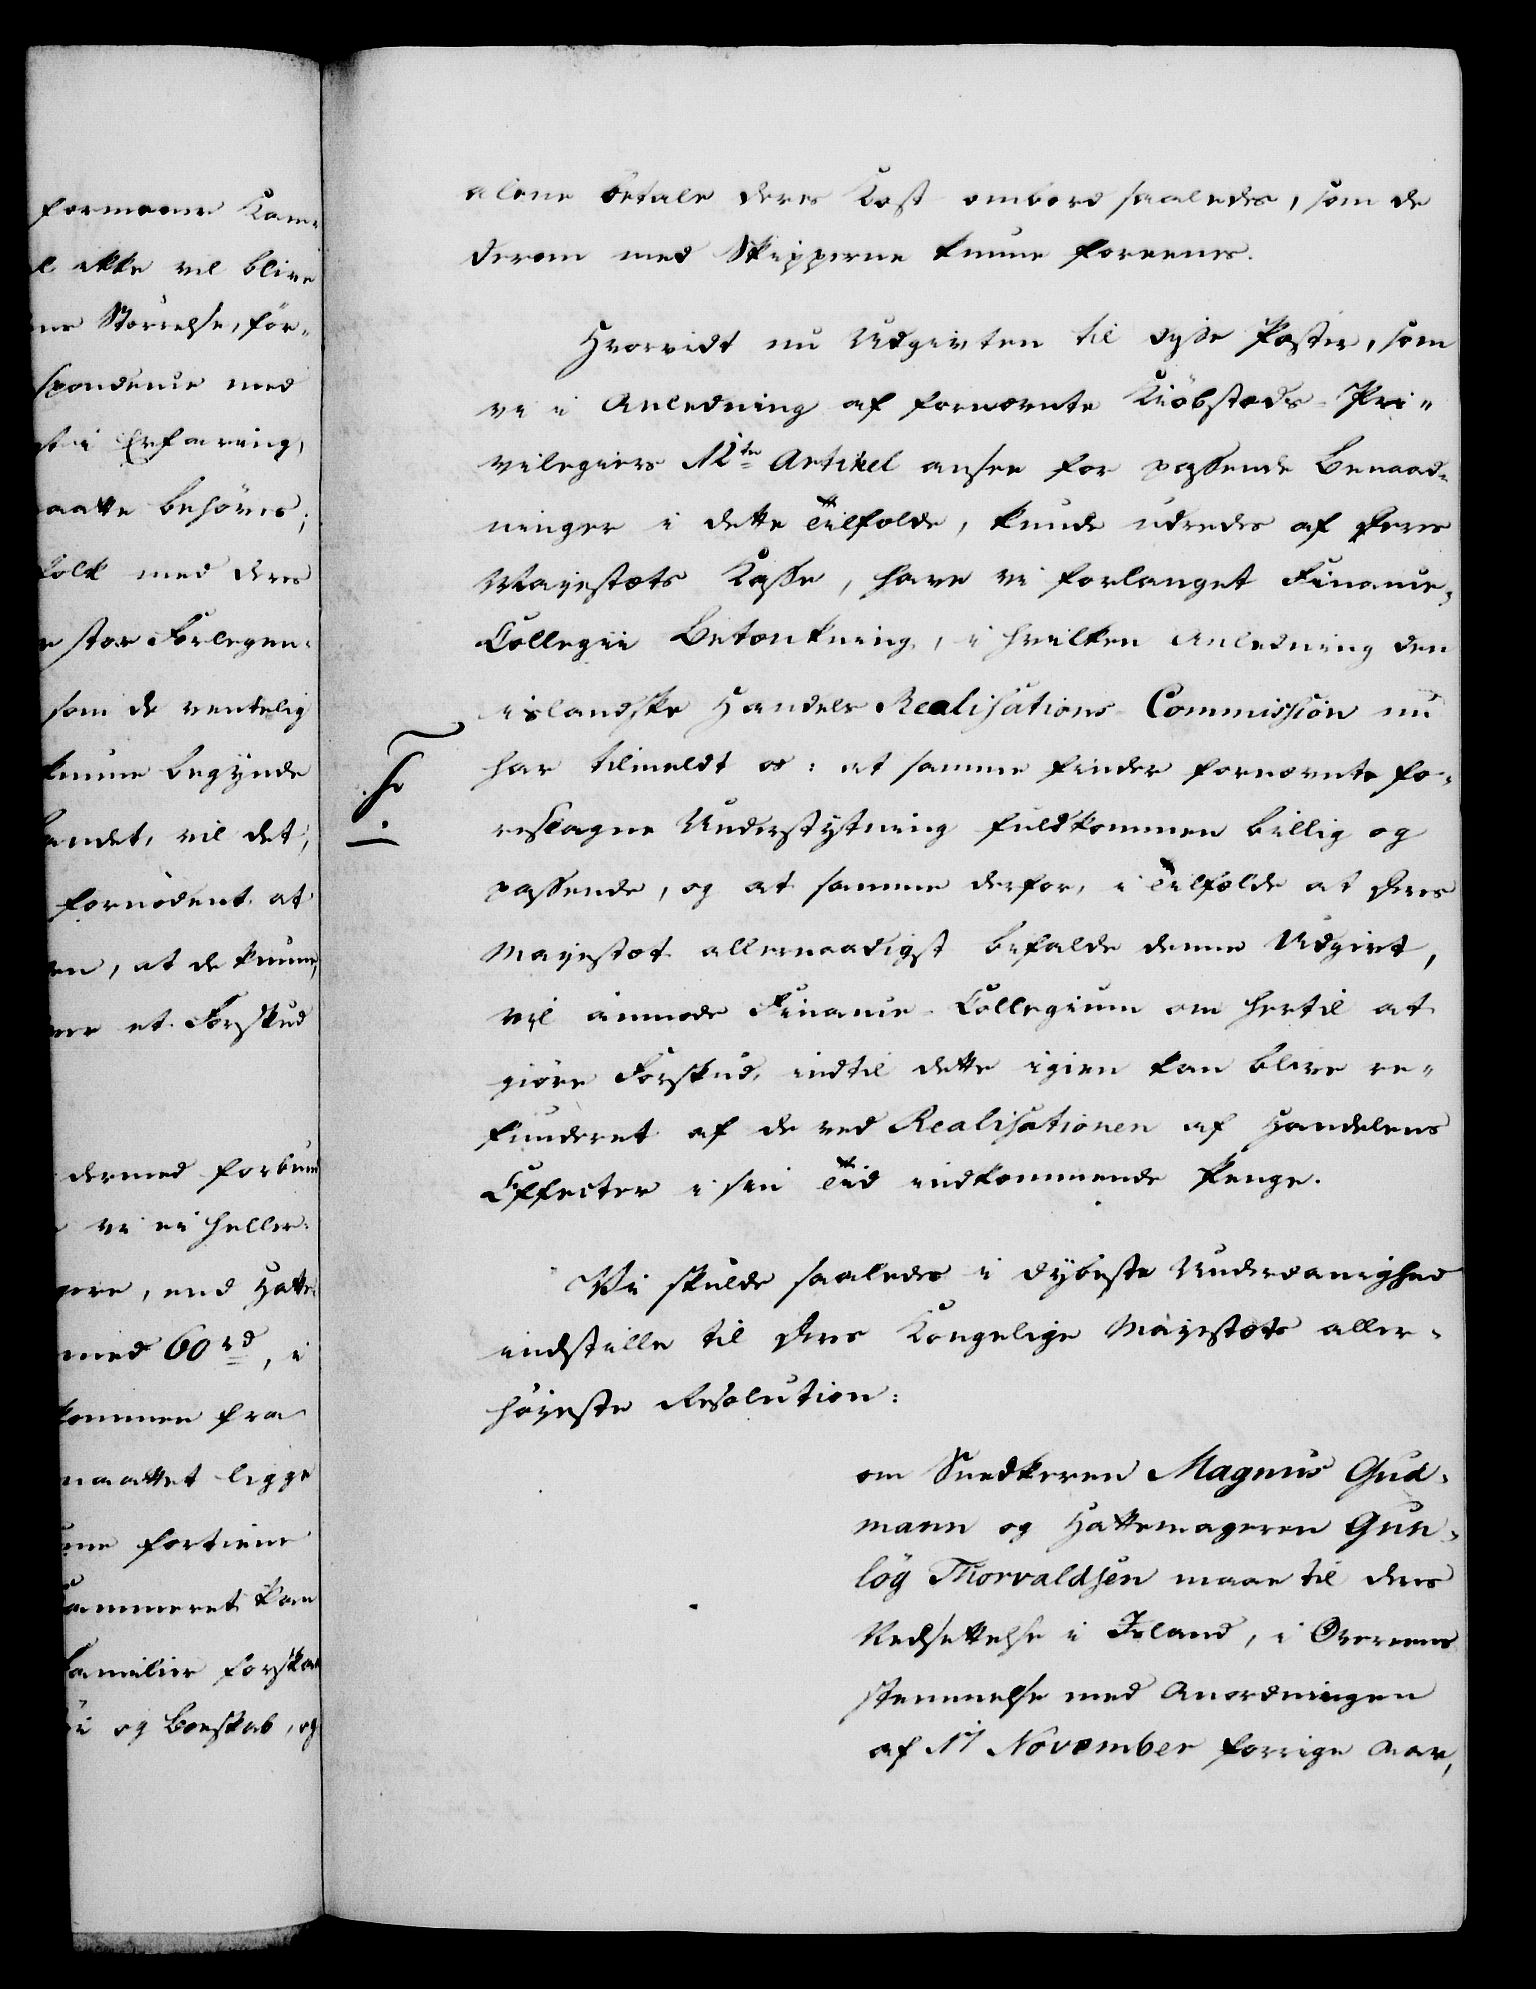 formener Kam-
l ikke vil blive
ns Störrelse, for-
spondence med
st i Erfaring,
aatte behöves;
folk med deres
e stor Forlegen-
som de ventelig
kunne begynde
andet, vil det,
fornödent at
en, at de kunne,
et Forskud
dermed forbun
vi ei heller
gere, end Hatte-
med 60 rd, i
kommen fra
maattet ligge
fortiene
Kammeret kan
familier forskaf
i og Boeskab, og
alene betale deres Kost ombord saaledes, som de
derom med Skipperne kunne foreenes.
Hvorvidt nu Udgivten til disse Poster, som
vi i Anledning af fornævnte Kiöbstæds-Pri-
vilegiers 12te Artikel ansee for passende Benaad-
ninger i dette Tilfælde, kunde udredes af Deres
Majestæts Kasse, have vi forlanget Finance-
Collegii Betænkning, i hvilken Anledning den
islandske Handels Realisations-Commission nu
har tilmeldt os: at samme finder fornævnte fo-
reslagne Understytning fuldkommen billig og
passende, og at samme derfor, i Tilfælde at Deres
Majestæt allernaadigst befalede denne Udgivt,
vil anmode Finance-Collegium om hertil at
giöre Forskud, indtil dette igien kan blive re-
funderet af de ved Realisationen af Handelens
Effecter i sin Tid indkommende Penge.
Vi skulde saaledes i dybeste Underdanighed
indstille til Deres Kongelige Majestæts aller-
höyeste Resolution:
om Snedkeren Magnus Gud-
mann og Hattemageren Gun-
lög Thorvaldsen maae til deres
Nedsettelse i Island, i Overeens
stemmelse med Anordningen
af 17 November forrige Aar,